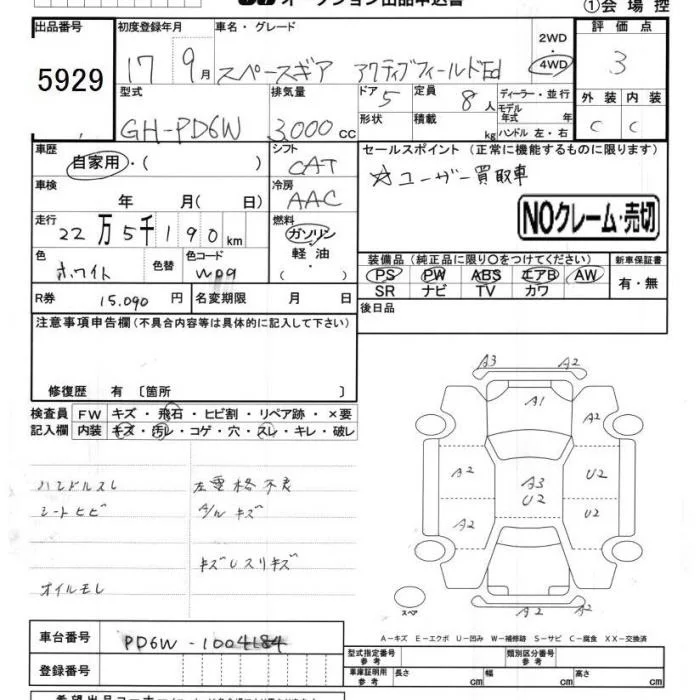 オークション出品申込書
①会場控
出品番号 初度登録年月 車名・グレード 評価点
5929 17 9月 スペースギア アクティブフィールドEd 2WD 4WD 3
型式 排気量 ドア 5 定員 8人 ディーラー・並行 外装 内装
GH-PD6W 3,000cc 形状 積載 kg モデル年式 年 ハンドル 左・右 C C
車歴 自家用・( ) シフト CAT セールスポイント(正常に機能するものに限ります)
車検 年 月( 日) 冷房 AAC ☆ユーザー買取車
走行 22万5千190km 燃料 ガソリン 軽油 ・( ) NOクレーム・売切
色 ホワイト 色替 色コード W09 装備品(純正品に限り○をつけてください) 新車保証書
PS PW ABS エアB AW 有・無
SR ナビ TV カワ
R券 15,090円 名変期限 月 日 後日品
注意事項申告欄(不具合内容等は具体的に記入して下さい)
修復歴 有〔箇所 〕
検査員 FW キズ・飛石・ヒビ割・リペア跡・×要
記入欄 内装 キズ・汚レ・コゲ・穴・スレ・キレ・破レ
A3 A2
A1 A2
A2 A3 U2 U2
A2 U2
A2 A2
ハンドルスレ 左電格不良
シートヒビ A/Wキズ
キズUスリキズ
オイルモレ
スペア
A-キズ E-エクボ U-凹み W-補修跡 S-サビ C-腐食 XX-交換済
車台番号 PD6W-1004184
登録番号
型式指定番号 参考 類別区分番号 参考
車庫証明用 参考 長さ cm 幅 cm 高さ cm